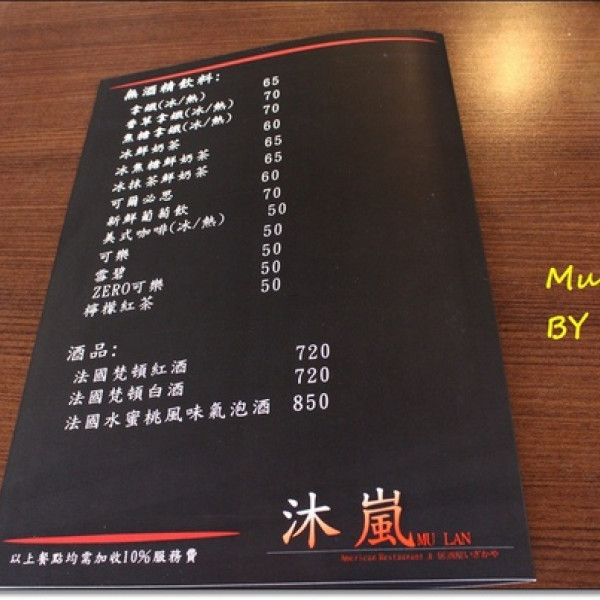 無酒精飲料:
拿鐵(冰/熱) 65
香草拿鐵(冰/熱) 70
焦糖拿鐵(冰/熱) 70
冰鮮奶茶 60
冰焦糖鮮奶茶 65
冰抹茶鮮奶茶 65
可爾必思 60
新鮮葡萄飲 70
美式咖啡(冰/熱) 50
可樂 50
雪碧 50
ZERO可樂 50
檸檬紅茶 50
酒品:
法國梵頓紅酒 720
法國梵頓白酒 720
法國水蜜桃風味氣泡酒 850
沐嵐 MU LAN
American Restaurant &
以上餐點均需加收10%服務費
Mu
BY